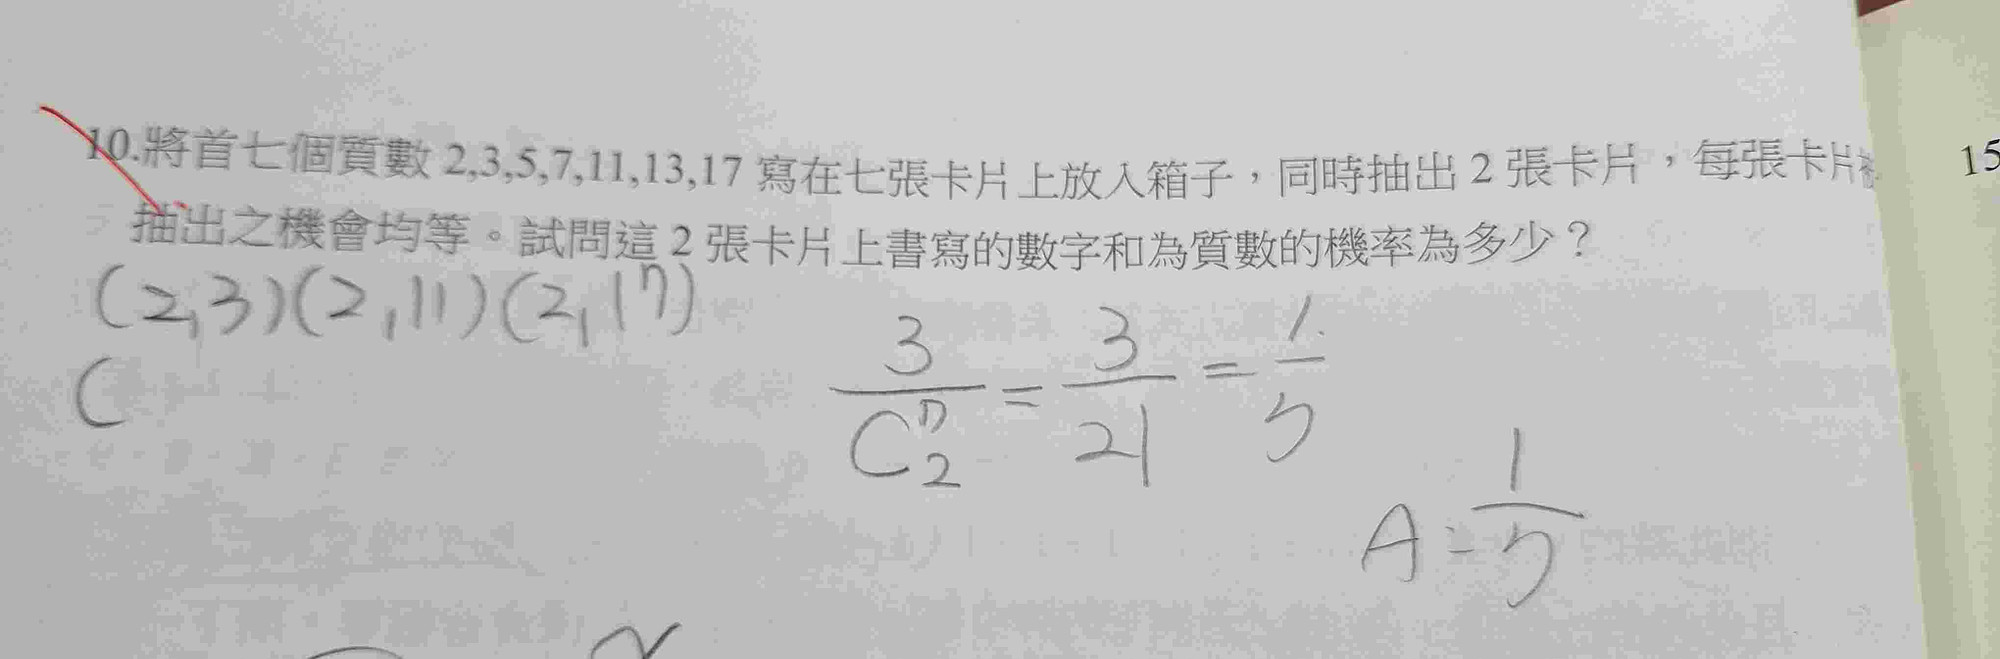 10.將首七個質數 2,3,5,7,11,13,17 寫在七張卡片上放入箱子，同時抽出 2 張卡片，每張卡片被
15
抽出之機會均等。試問這 2 張卡片上書寫的數字和為質數的機率為多少？
(2,3)(2,11)(2,17)
(
3/C⁷₂ = 3/21 = 1/7
A: 1/7